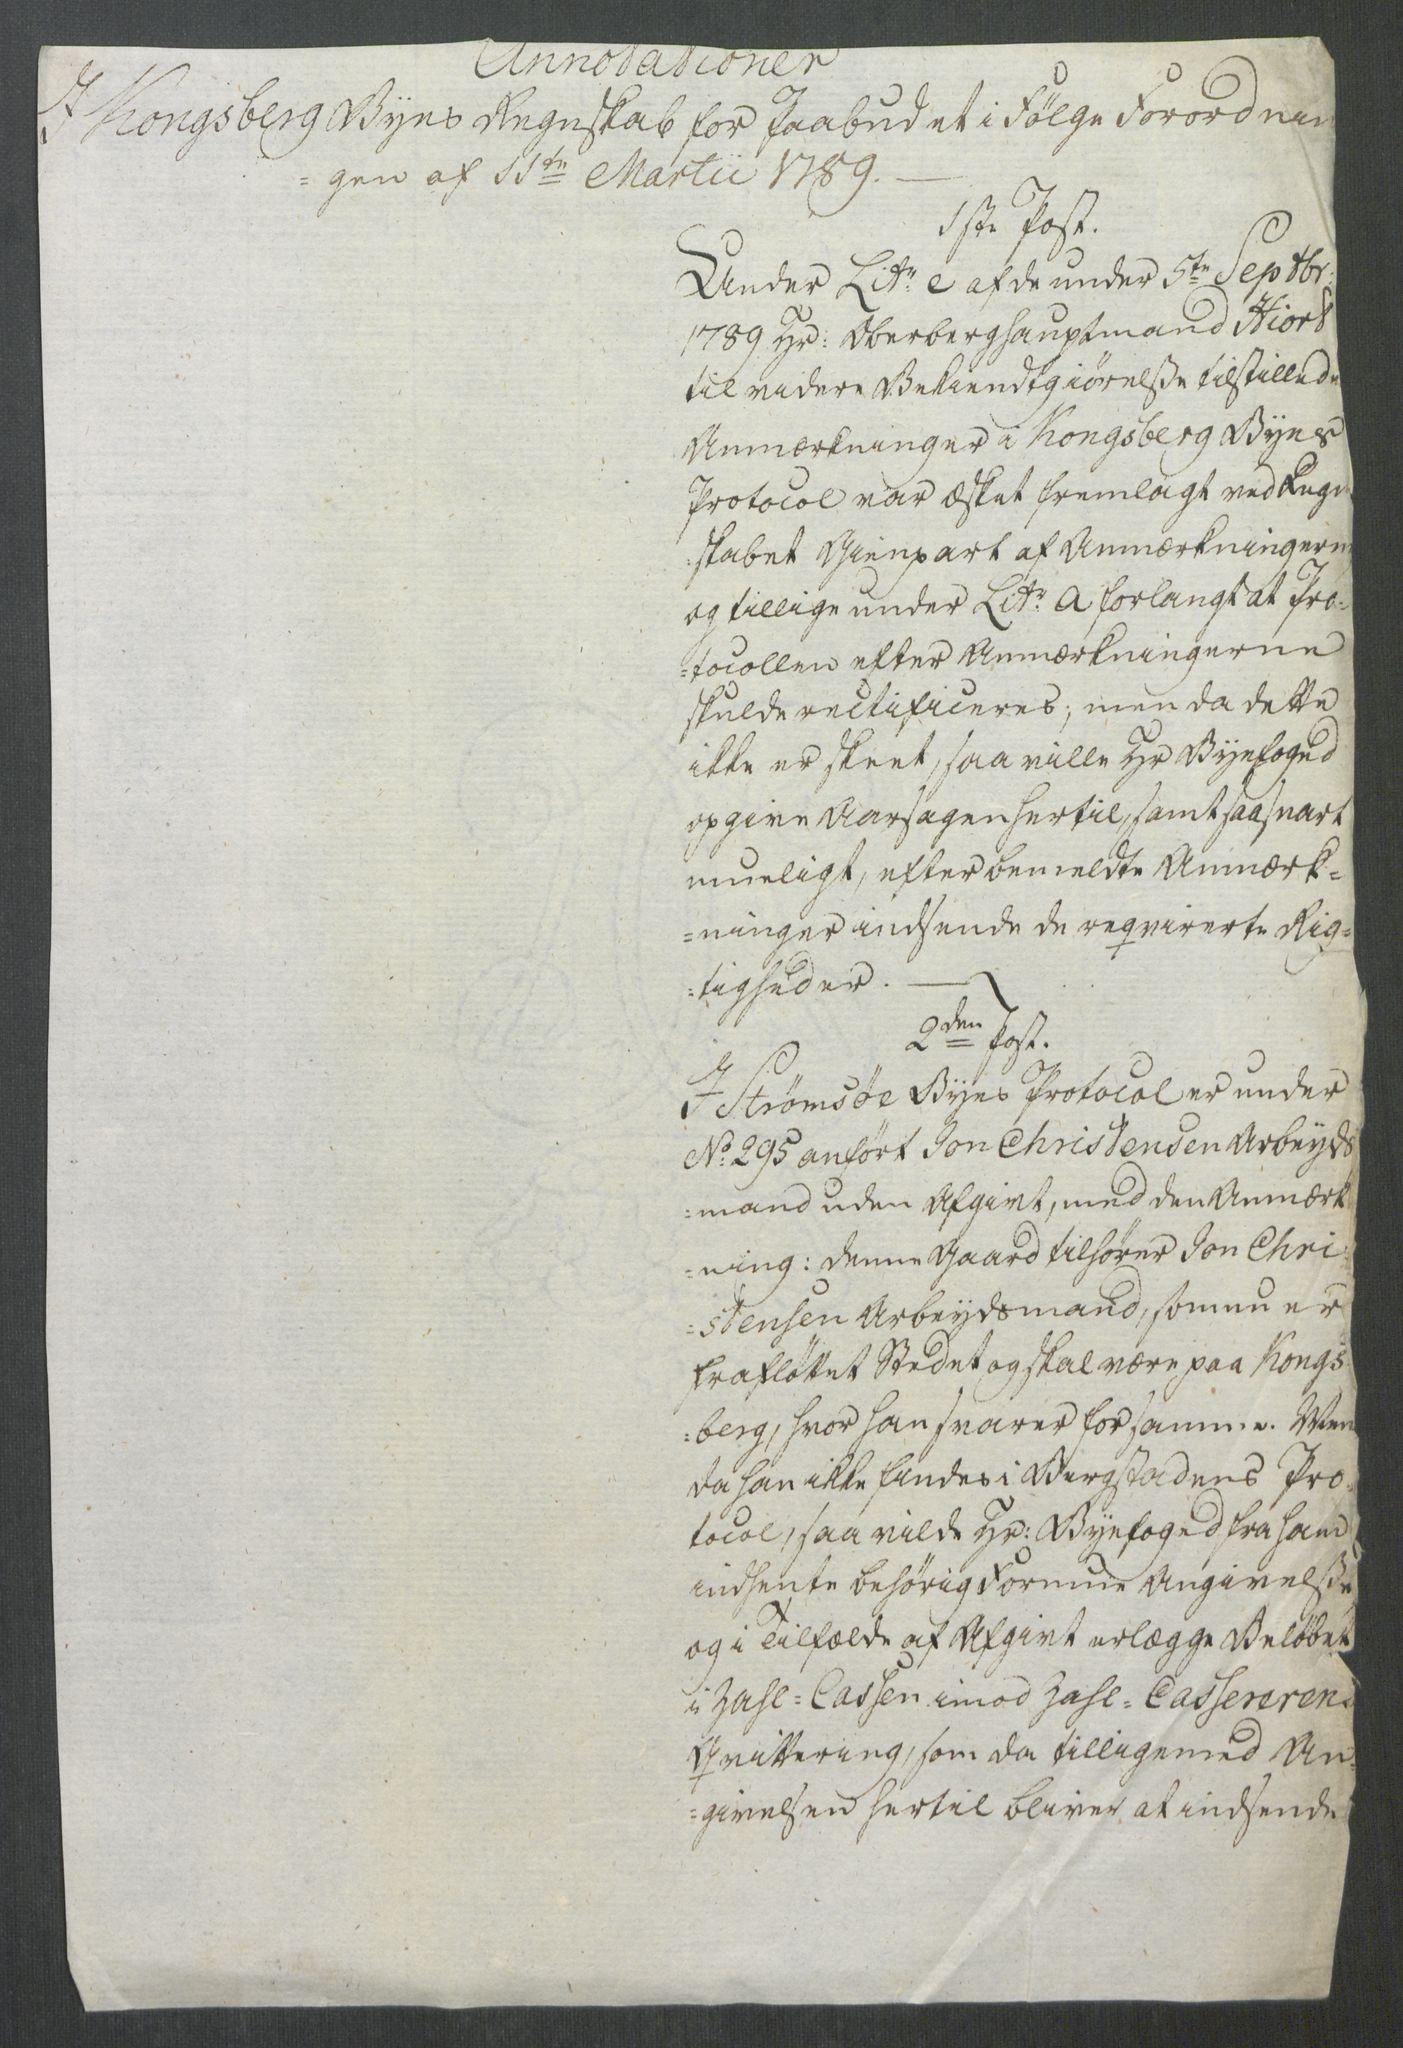 Annotationer
I Kongsberg Byes Regnskab for Paabudet i Følge Forordnin
= gen af 11te Martii 1789. —
1ste Post.
Under Litr: e af de under 5te Septbr:
1789 Hr: Oberberghauptmand Hiort
til videre Bekiendtgiørelse tilstillede
Anmærkninger i Kongsberg Byes
Protocol var æsket fremlagt ved Regn
skabet Gienpart af Anmærkningerne
og tillige under Litr: a forlangt at Pro=
=tocollen efter Anmærkningerne
skulde rectificeres; men da dette
ikke er skeet, saa ville Hr Byefoged
opgive Aarsagen hertil, samt saasnart
mueligt, efter bemeldte Anmærk=
=ninger indsende de reqvirerte Rig=
=tigheder. —
2den Post.
I Strømsøe Byes Protocol er under
No. 295 anført Jon Christensen Arbeyds
=mand uden Afgivt, med den Anmærk
=ning: denne Gaard tilhører Jon Chri
=stensen Arbeydsmand, som nu er
frafløttet Stedet og skal være paa Kongs
=berg, hvor han svarer for samme. Men
da han ikke findes i Bergstadens Pro=
tocol, saa vilde Hr: Byefoged fra ham
indhente behørig Formue Angivelse
og i Tilfælde af Afgivt erlægge Beløbet
i Zahl=Cassen imod Zahl=Cassererens
Qvittering, som da tilligemed An=
=givelsen hertil bliver at indsende